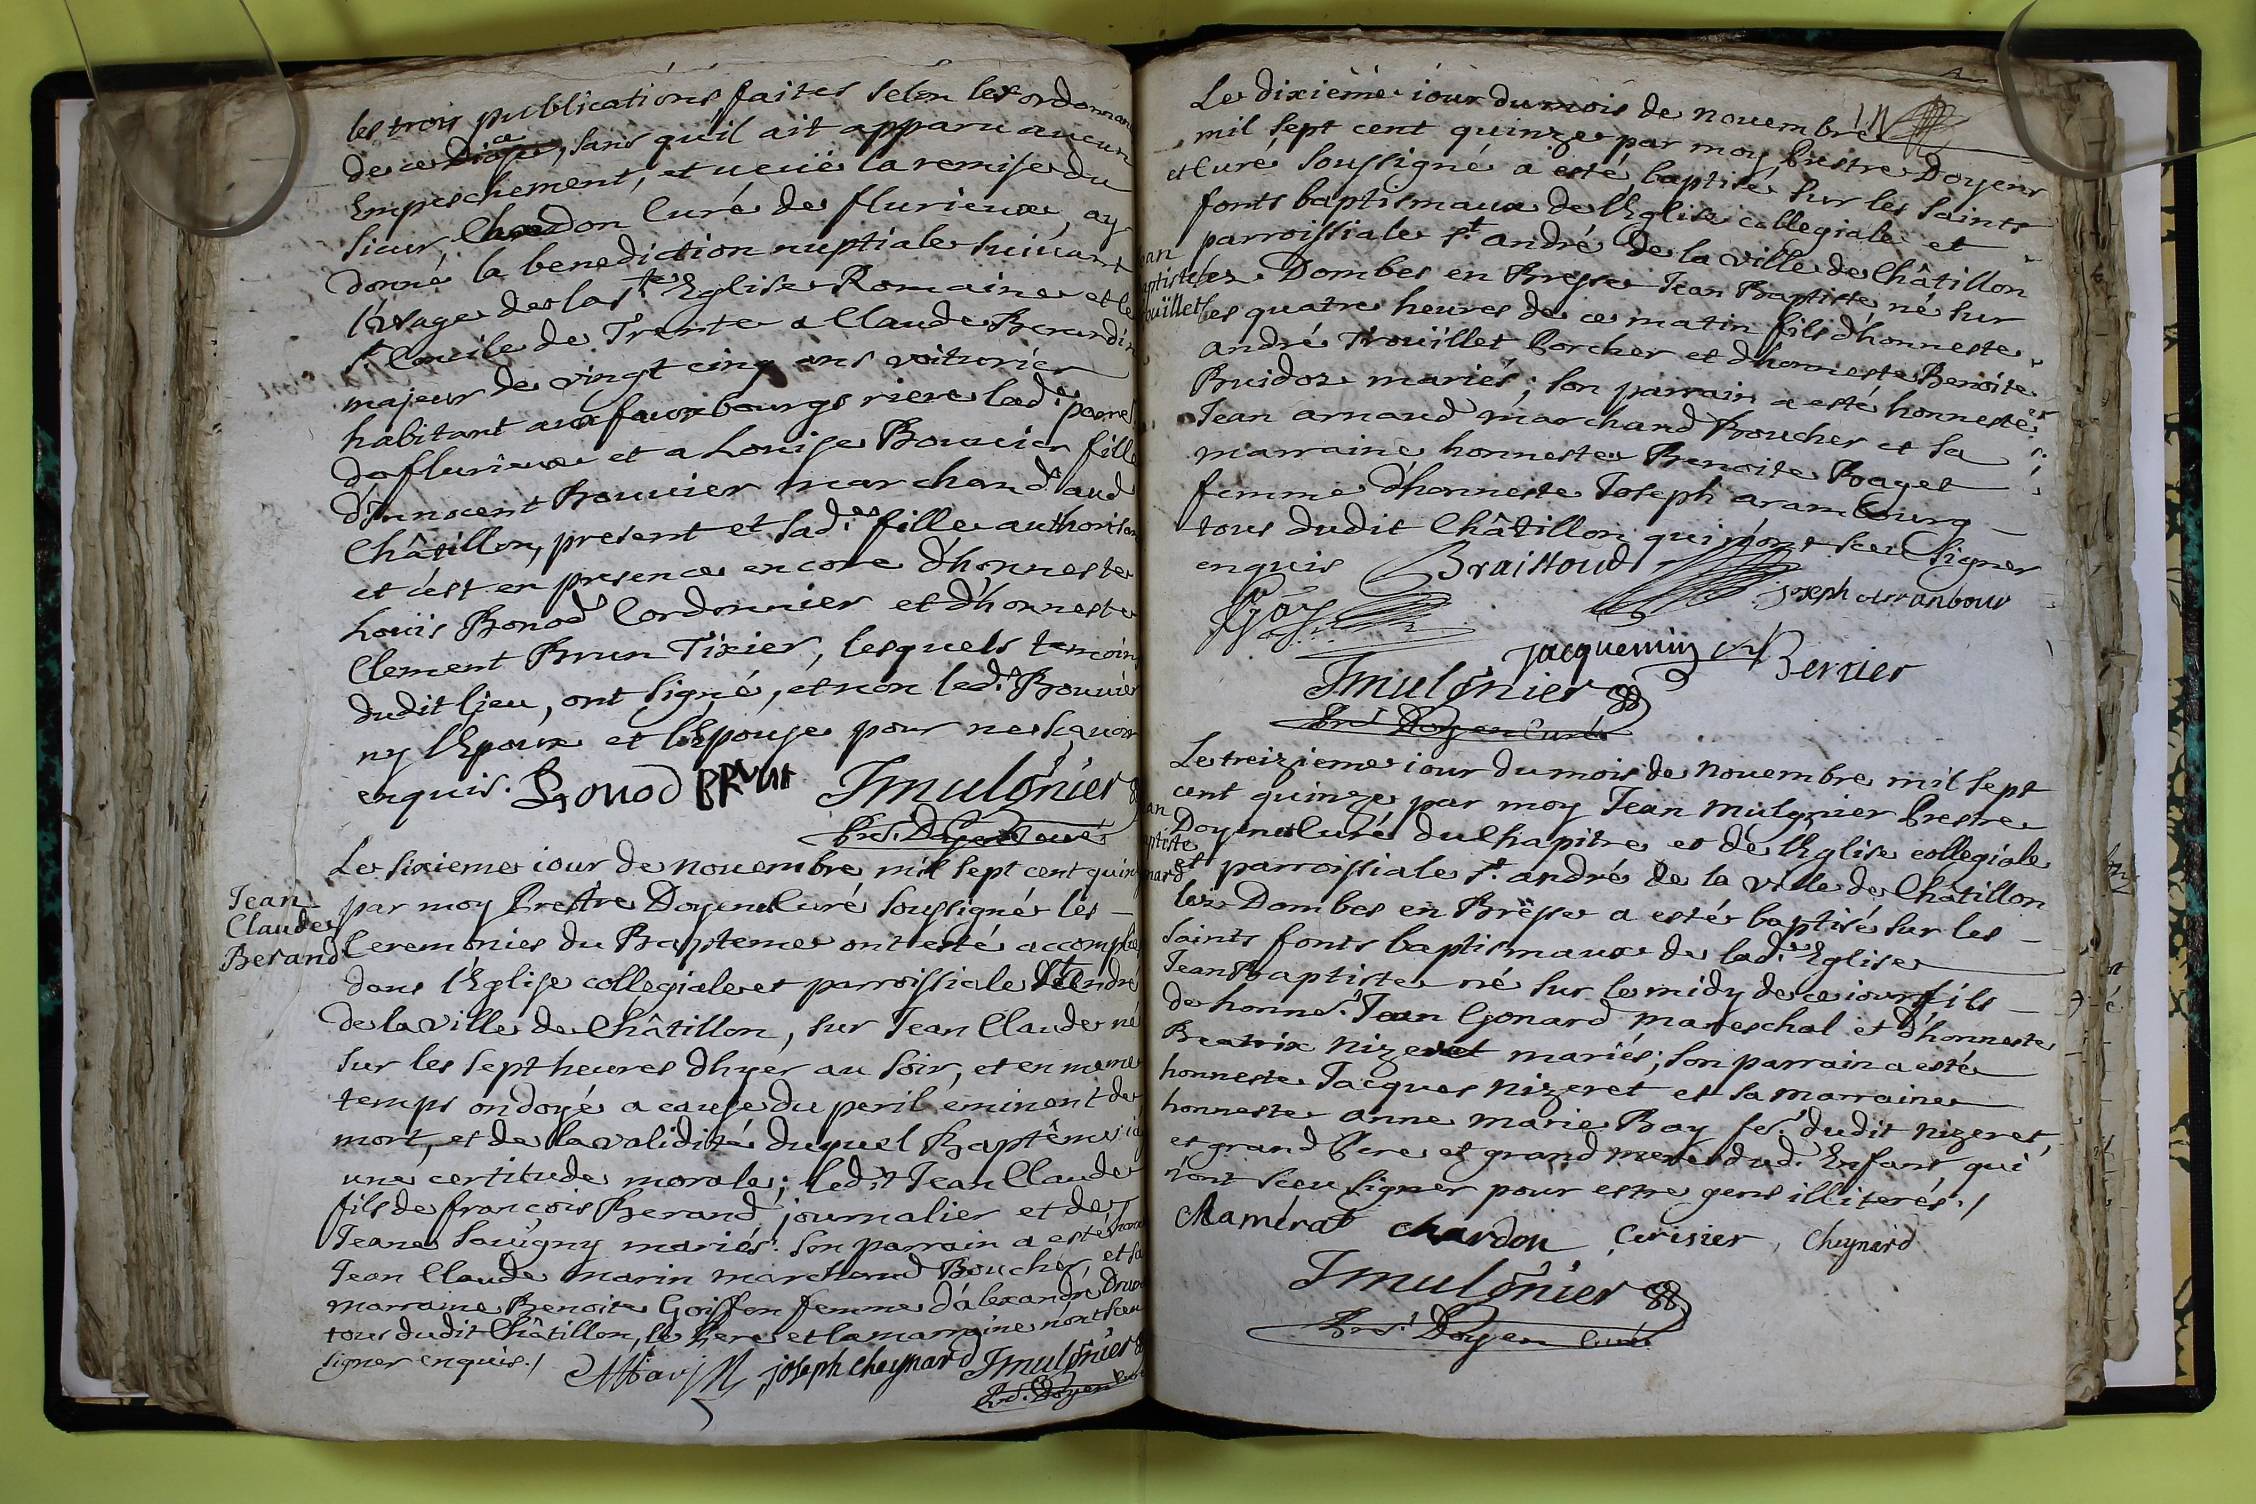 les trois publications faites selon les ordonnan
de ce , sans quil ait apparu aucun
Empeschement, et ueüe la remise du
sieur Chardon Curé de flurieux, ay
donné la benediction nuptiale suiuant
l'vsage de la ste Eglise Romaine et le
st Concile de Trente a Claude Berardin
majeur de vingt cinq ans voiturier
habitant aux fauxbourgs riere lad.e parroi
de flurieux et a Louise Bouuier fille
d'Innocent Bouuier marchand aud
Châtillon, present et sad.e fille authorisan
et c'est en presence encore d'honneste
Loüis Bonod Cordonnier et d'honneste
Clement Brun Tixier, lesquels temoins
dudit lieu, ont signé, et non led.t Bouuier
ny l'Epoux et l'Epouse pour ne sçauoir
enquis. Bonod BRVN Jmulgnier
Pre. Doyen Curé
Le sixieme iour de nouembre mil sept cent quinz
Jean
Claude
Berand
par moy Prestre Doyen et Curé soussigné les
Ceremonies du Bapteme ont esté accomplies
dans l'Eglise collegiale et parroissiale st André
de la ville de Châtillon, sur Jean Claude né
sur les sept heures d'hyer au soir, et en meme
temps ondoyé a cause du peril eminent de
mort, et de la validité duquel Baptême i'ay
une certitude morale; ledit Jean Claude
fils de françois Berand journalier et de
Jeane Sauigny mariés. Son parrain a esté hon
Jean Claude marin marchand Boucher, et sa
marraine Benoite Goiffon femme d'alexandre Druet
tous dudit Châtillon, le Pere et la marraine n'ont sceu
signer enquis./ joseph cheynard Jmulgnier
Pre. Doyen Curé
Le dixième iour du mois de nouembre
mil sept cent quinze par moy Prestre Doyen
et Curé soussigné a esté baptisé sur les saints
fonts baptismaux de l'Eglise collegiale et
parroissiale st andré de la ville de Châtillon
Jean
Baptiste
Trouïllet
lez Dombes en Bresse Jean Baptiste né sur
les quatre heures de ce matin fils d'honneste
andré Trouïllet Porcher et d'honneste Benoite
Buidoz mariés; son parrain a esté honneste
Jean arnaud marchand Boucher et sa
marraine honneste Benoite Paget
femme d'honneste Joseph arambourg
tous dudit Châtillon qui n'ont sceu signer
enquis Braissoud joseph arranbour
Gay
jacquemin Bernier
Jmulgnier
Pre. Doyen Curé
Le treizieme iour du mois de nouembre mil sept
cent quinze par moy Jean mulgnier Prestre
Jean
Baptiste
Gonard
Doyen et Curé du Chapitre et de l'Eglise collegiale
et parroissiale st. andré de la ville de Châtillon
lez Dombes en Bresse a esté baptisé sur les
saints fonts baptismaux de lad.e Eglise
Jean Baptiste né sur le midy de ce iour, fils
de honne. Jean Gonard mareschal et d'honneste
Beatrix nizeret mariés; son parrain a esté
honneste Jacques nizeret et sa marraine
honneste anne marie Bay fe. dudit nizeret,
et grand Pere et grand mere dud. Enfant qui
n'ont sceu signer pour estre gens illiterés./
Chamérat chardon Cerisier, Cheynard
Jmulgnier
Pre. Doyen Curé